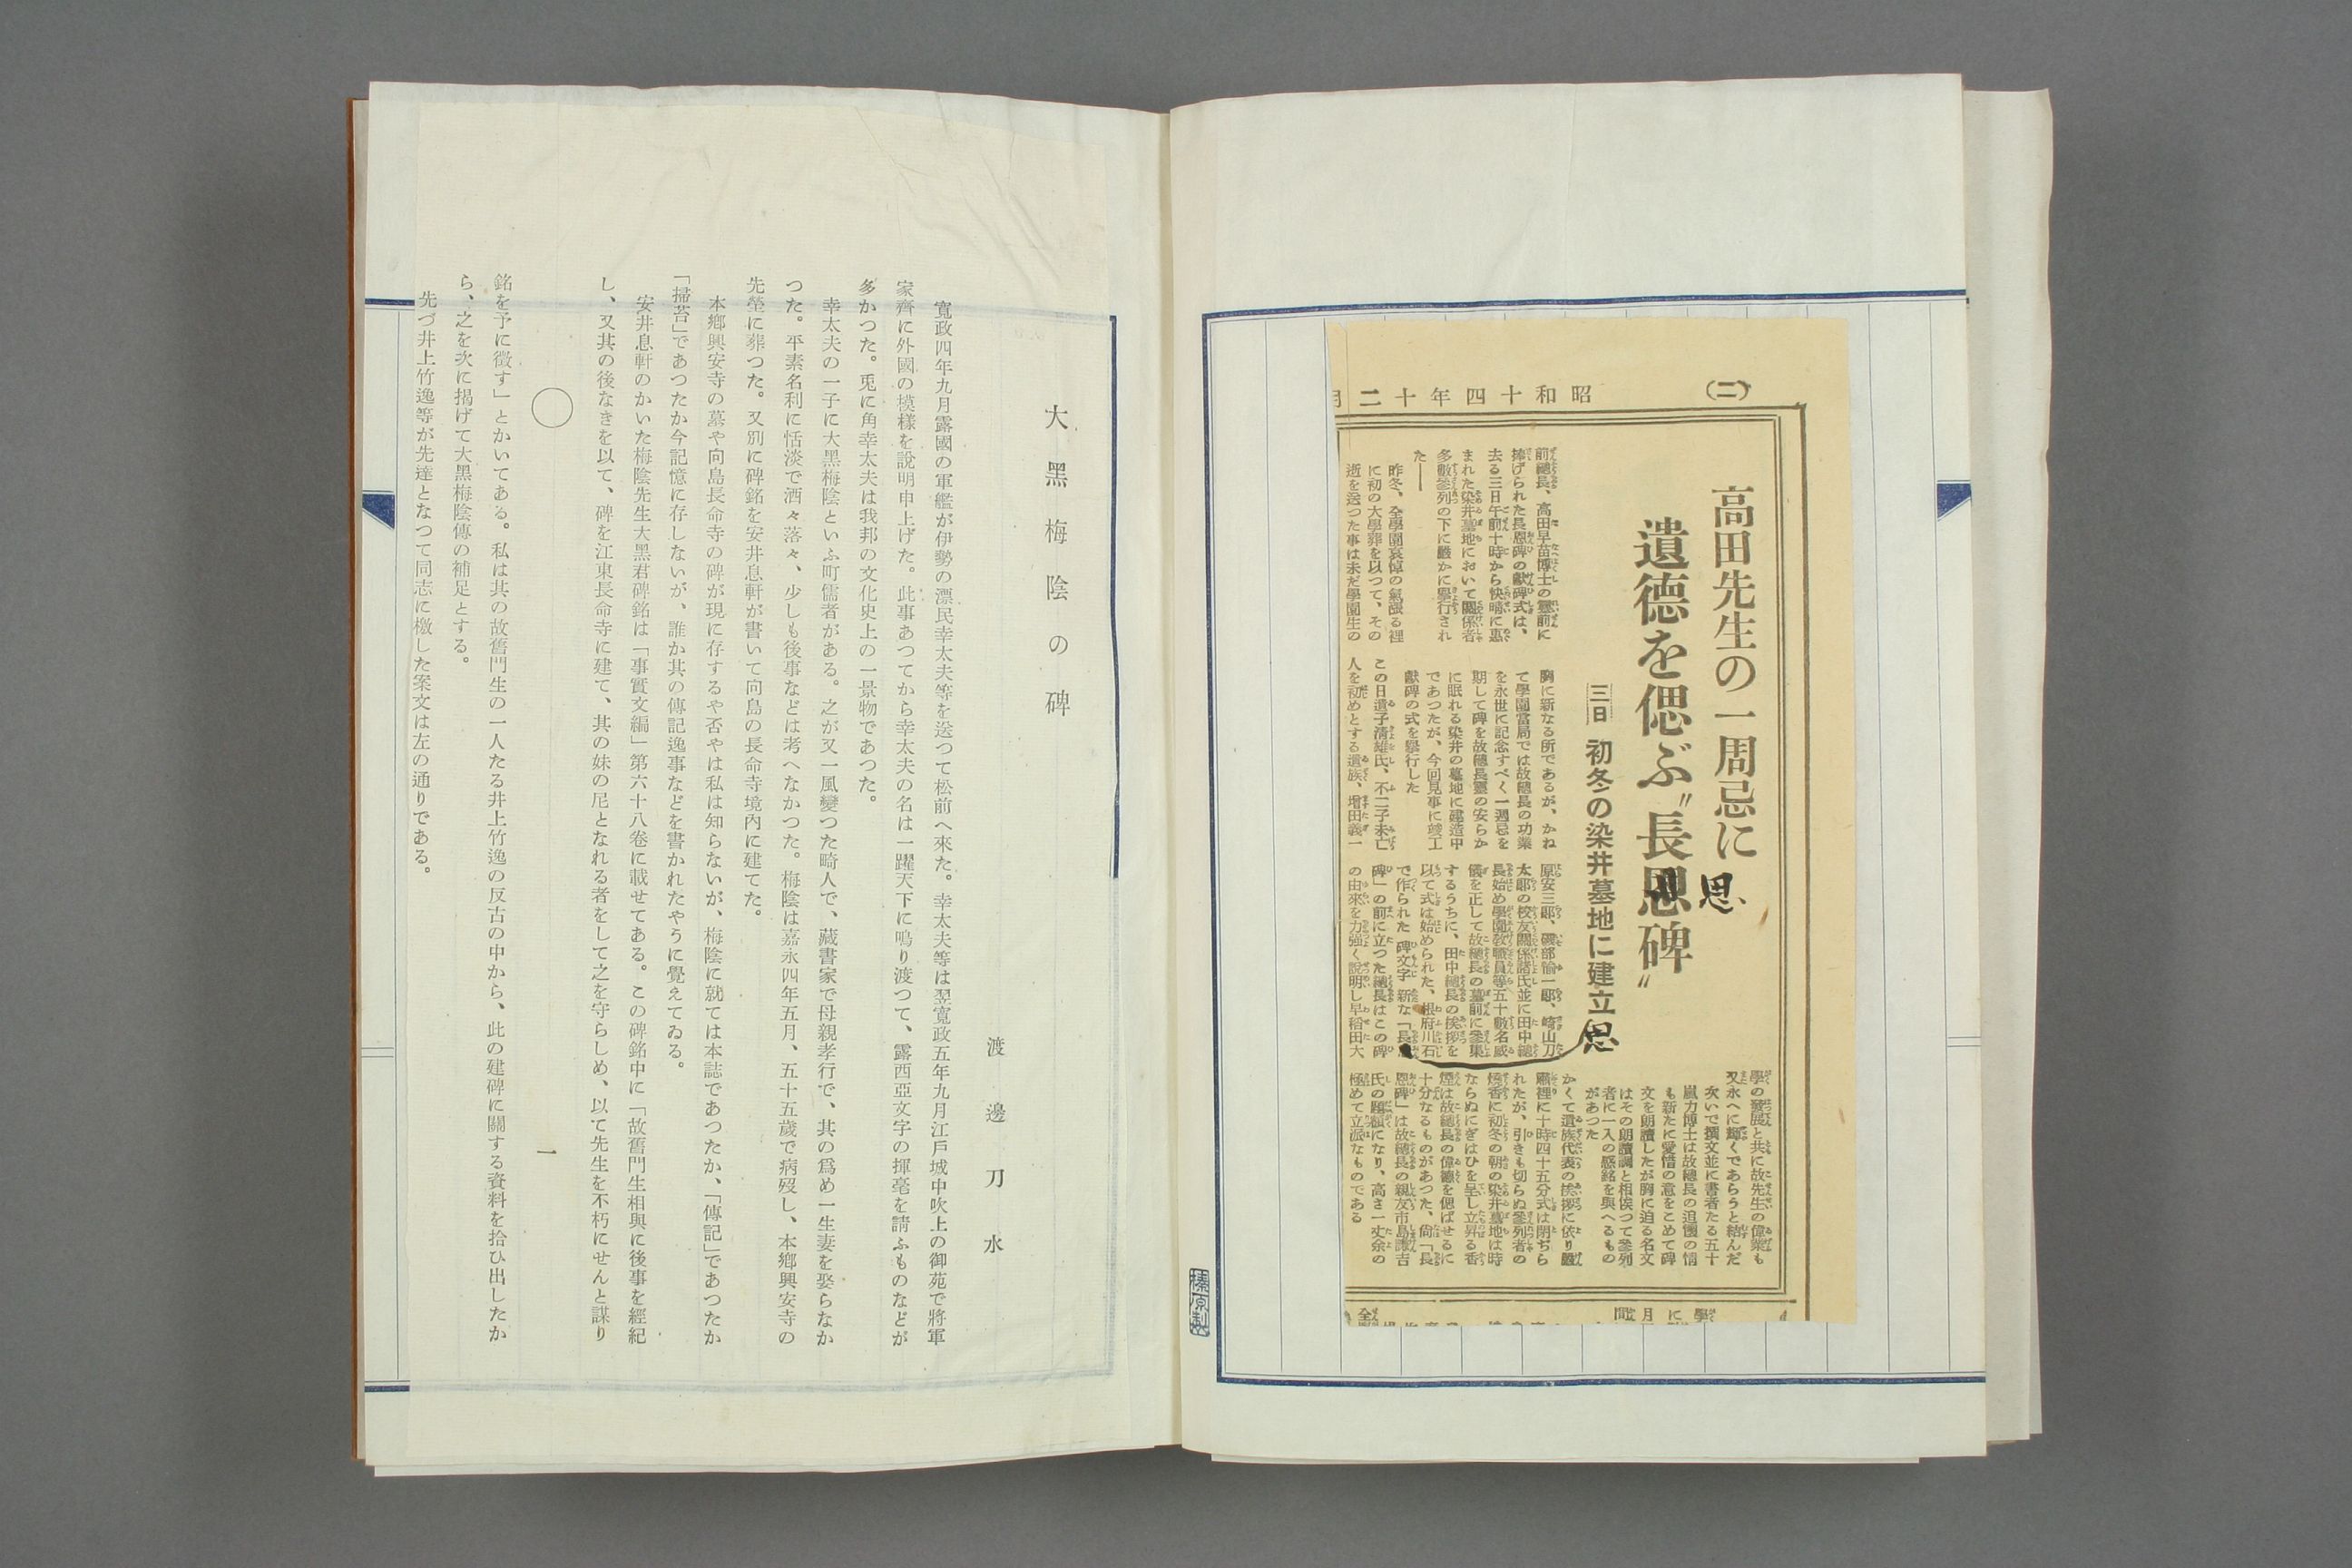 (二)
昭和十四年十二月
高田先生の一周忌に
遺徳を偲ぶ〝長恩碑〟
思
三日 初冬の染井墓地に建立
思
前總長、高田早苗博士の靈前に
捧げられた長恩碑の獻碑式は、
去る三日午前十時から快晴に惠
まれた染井墓地において關係者
多數參列の下に嚴かに擧行され
た――
昨冬、全學園哀悼の氣漲る裡
に初の大學葬を以つて、その
逝を送つた事は未だ學園生の
胸に新なる所であるが、かね
て學園當局では故總長の功業
を永世に記念すべく一週忌を
期して碑を故總長靈の安らか
に眠れる染井の墓地に建造中
であつたが、今回見事に竣工
獻碑の式を擧行した
この日遺子淸雄氏、不二子未亡
人を初めとする遺族、增田義一
原安三郞、磯部愉一郞、崎山刀
太郞の校友關係諸氏並に田中總
長始め學園敎職員等五十數名威
儀を正して故總長の墓前に參集
するうちに、田中總長の挨拶を
以て式は始められた、根府川石
で作られた 碑文字 新な「長
碑」の前に立つた總長はこの碑
の由來を力强く說明し早稻田大
學の發展と共に故先生の偉業も
又永へに輝くであらうと結んだ
次いで撰文並に書者たる五十
嵐力博士は故總長の追懷の情
も新たに愛惜の意をこめて碑
文を朗讀したが胸に迫る名文
はその朗讀調と相俟つて參列
者に一入の感銘を與へるもの
があつた
かくて遺族代表の挨拶に依り嚴
肅裡に十時四十五分式は閉ぢら
れたが、引きも切らぬ參列者の
燒香に初冬の朝の染井墓地は時
ならぬにぎはひを呈し立昇る香
煙は故總長の偉德を偲ばせるに
十分なるものがあつた、尙「長
恩碑」は故總長の親友市島謙吉
氏の題額になり、高さ一丈余の
極めて立派なものである
榛原製
大黑梅陰の碑
渡邊刀水
寬政四年九月露國の軍艦が伊勢の漂民幸太夫等を送つて松前へ來た。幸太夫等は翌寬政五年九月江戶城中吹上の御苑で將軍
家齊に外國の模樣を說明申上げた。此事あつてから幸太夫の名は一躍天下に鳴り渡つて、露西亞文字の揮毫を請ふものなどが
多かつた。兎に角幸太夫は我邦の文化史上の一景物であつた。
幸太夫の一子に大黑梅陰といふ町儒者がある。之が又一風變つた畸人で、藏書家で母親孝行で、其の爲め一生妻を娶らなか
つた。平素名利に恬淡で洒々落々、少しも後事などは考へなかつた。梅陰は嘉永四年五月、五十五歲で病歿し、本鄕興安寺の
先塋に葬つた。又別に碑銘を安井息軒が書いて向島の長命寺境內に建てた。
本鄕興安寺の墓や向島長命寺の碑が現に存するや否やは私は知らないが、梅陰に就ては本誌であつたか、「傳記」であつたか
「掃苔」であつたか今記憶に存しないが、誰か其の傳記逸事などを書かれたやうに覺えてゐる。
安井息軒のかいた梅陰先生大黑君碑銘は「事實文編」第六十八卷に載せてある。この碑銘中に「故舊門生相與に後事を經紀
し、又其の後なきを以て、碑を江東長命寺に建て、其の妹の尼となれる者をして之を守らしめ、以て先生を不朽にせんと謀り
一
銘を予に徵す」とかいてある。私は其の故舊門生の一人たる井上竹逸の反古の中から、此の建碑に關する資料を拾ひ出したか
ら、之を次に揭げて大黑梅陰傳の補足とする。
先づ井上竹逸等が先達となつて同志に檄した案文は左の通りである。